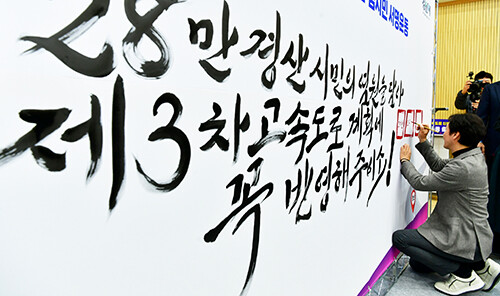 시민 서명운동
28만 경산시민의 염원을 담아
제3차 고속도로 계획에
꼭 반영해 주이소!